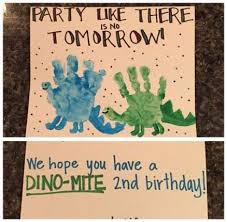 PARTY LIKE THERE
IS NO
TOMORROW!
We hope you have a
DINO-MITE 2nd birthday!